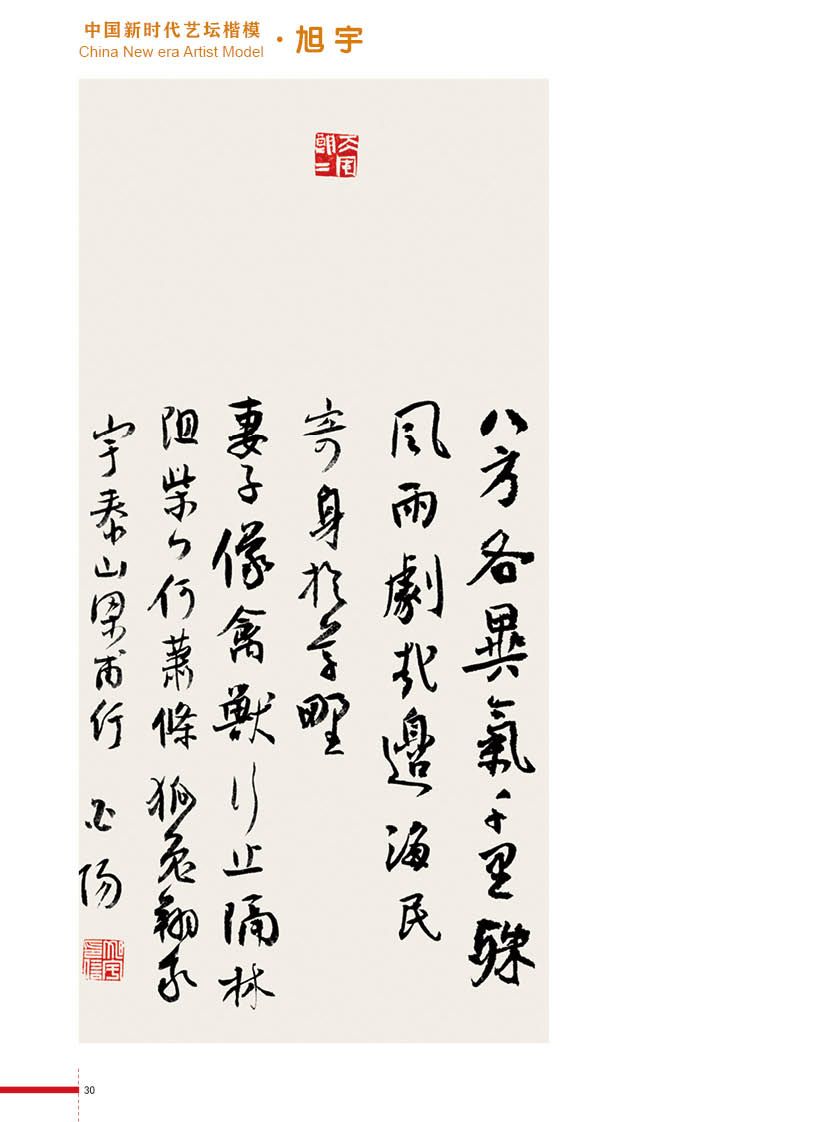 中国新时代艺坛楷模
China New era Artist Model · 旭宇
八方各異氣千里殊
風雨劇哉邊海民
寄身於草野
妻子像禽獸行止隔林
阻柴門何蕭條狐兔翔我
宇泰山梁甫行
30